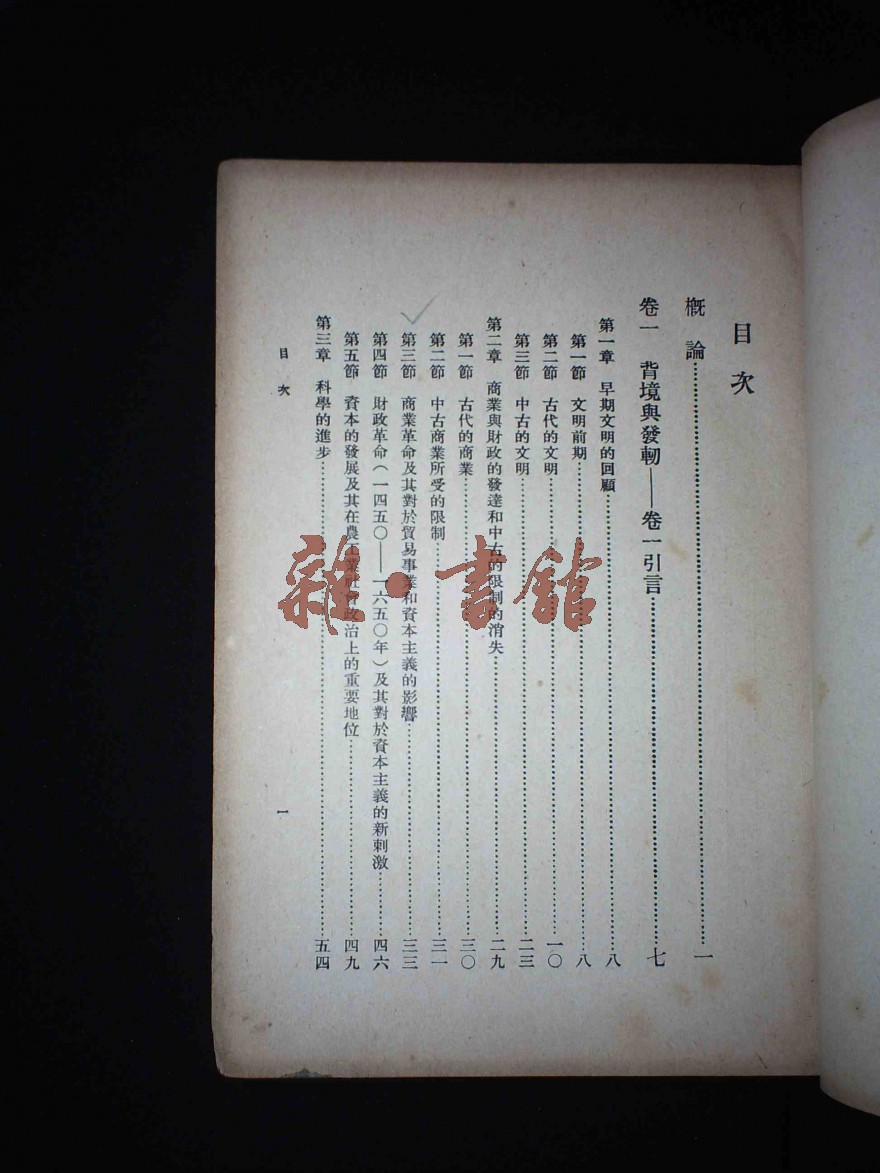 目次
概論……一
卷一 背境與發軔——卷一引言……七
第一章 早期文明的回顧……八
第一節 文明前期……八
第二節 古代的文明……一〇
第三節 中古的文明……二三
第二章 商業與財政的發達和中古的限制的消失……二九
第一節 古代的商業……三〇
第二節 中古商業所受的限制……三一
第三節 商業革命及其對於貿易事業和資本主義的影響……三三
第四節 財政革命(一四五〇——一六五〇年)及其對於資本主義的新刺激……四六
第五節 資本的發展及其在農工業社會政治上的重要地位……四九
第三章 科學的進步……五四
目次
一
雜·書館